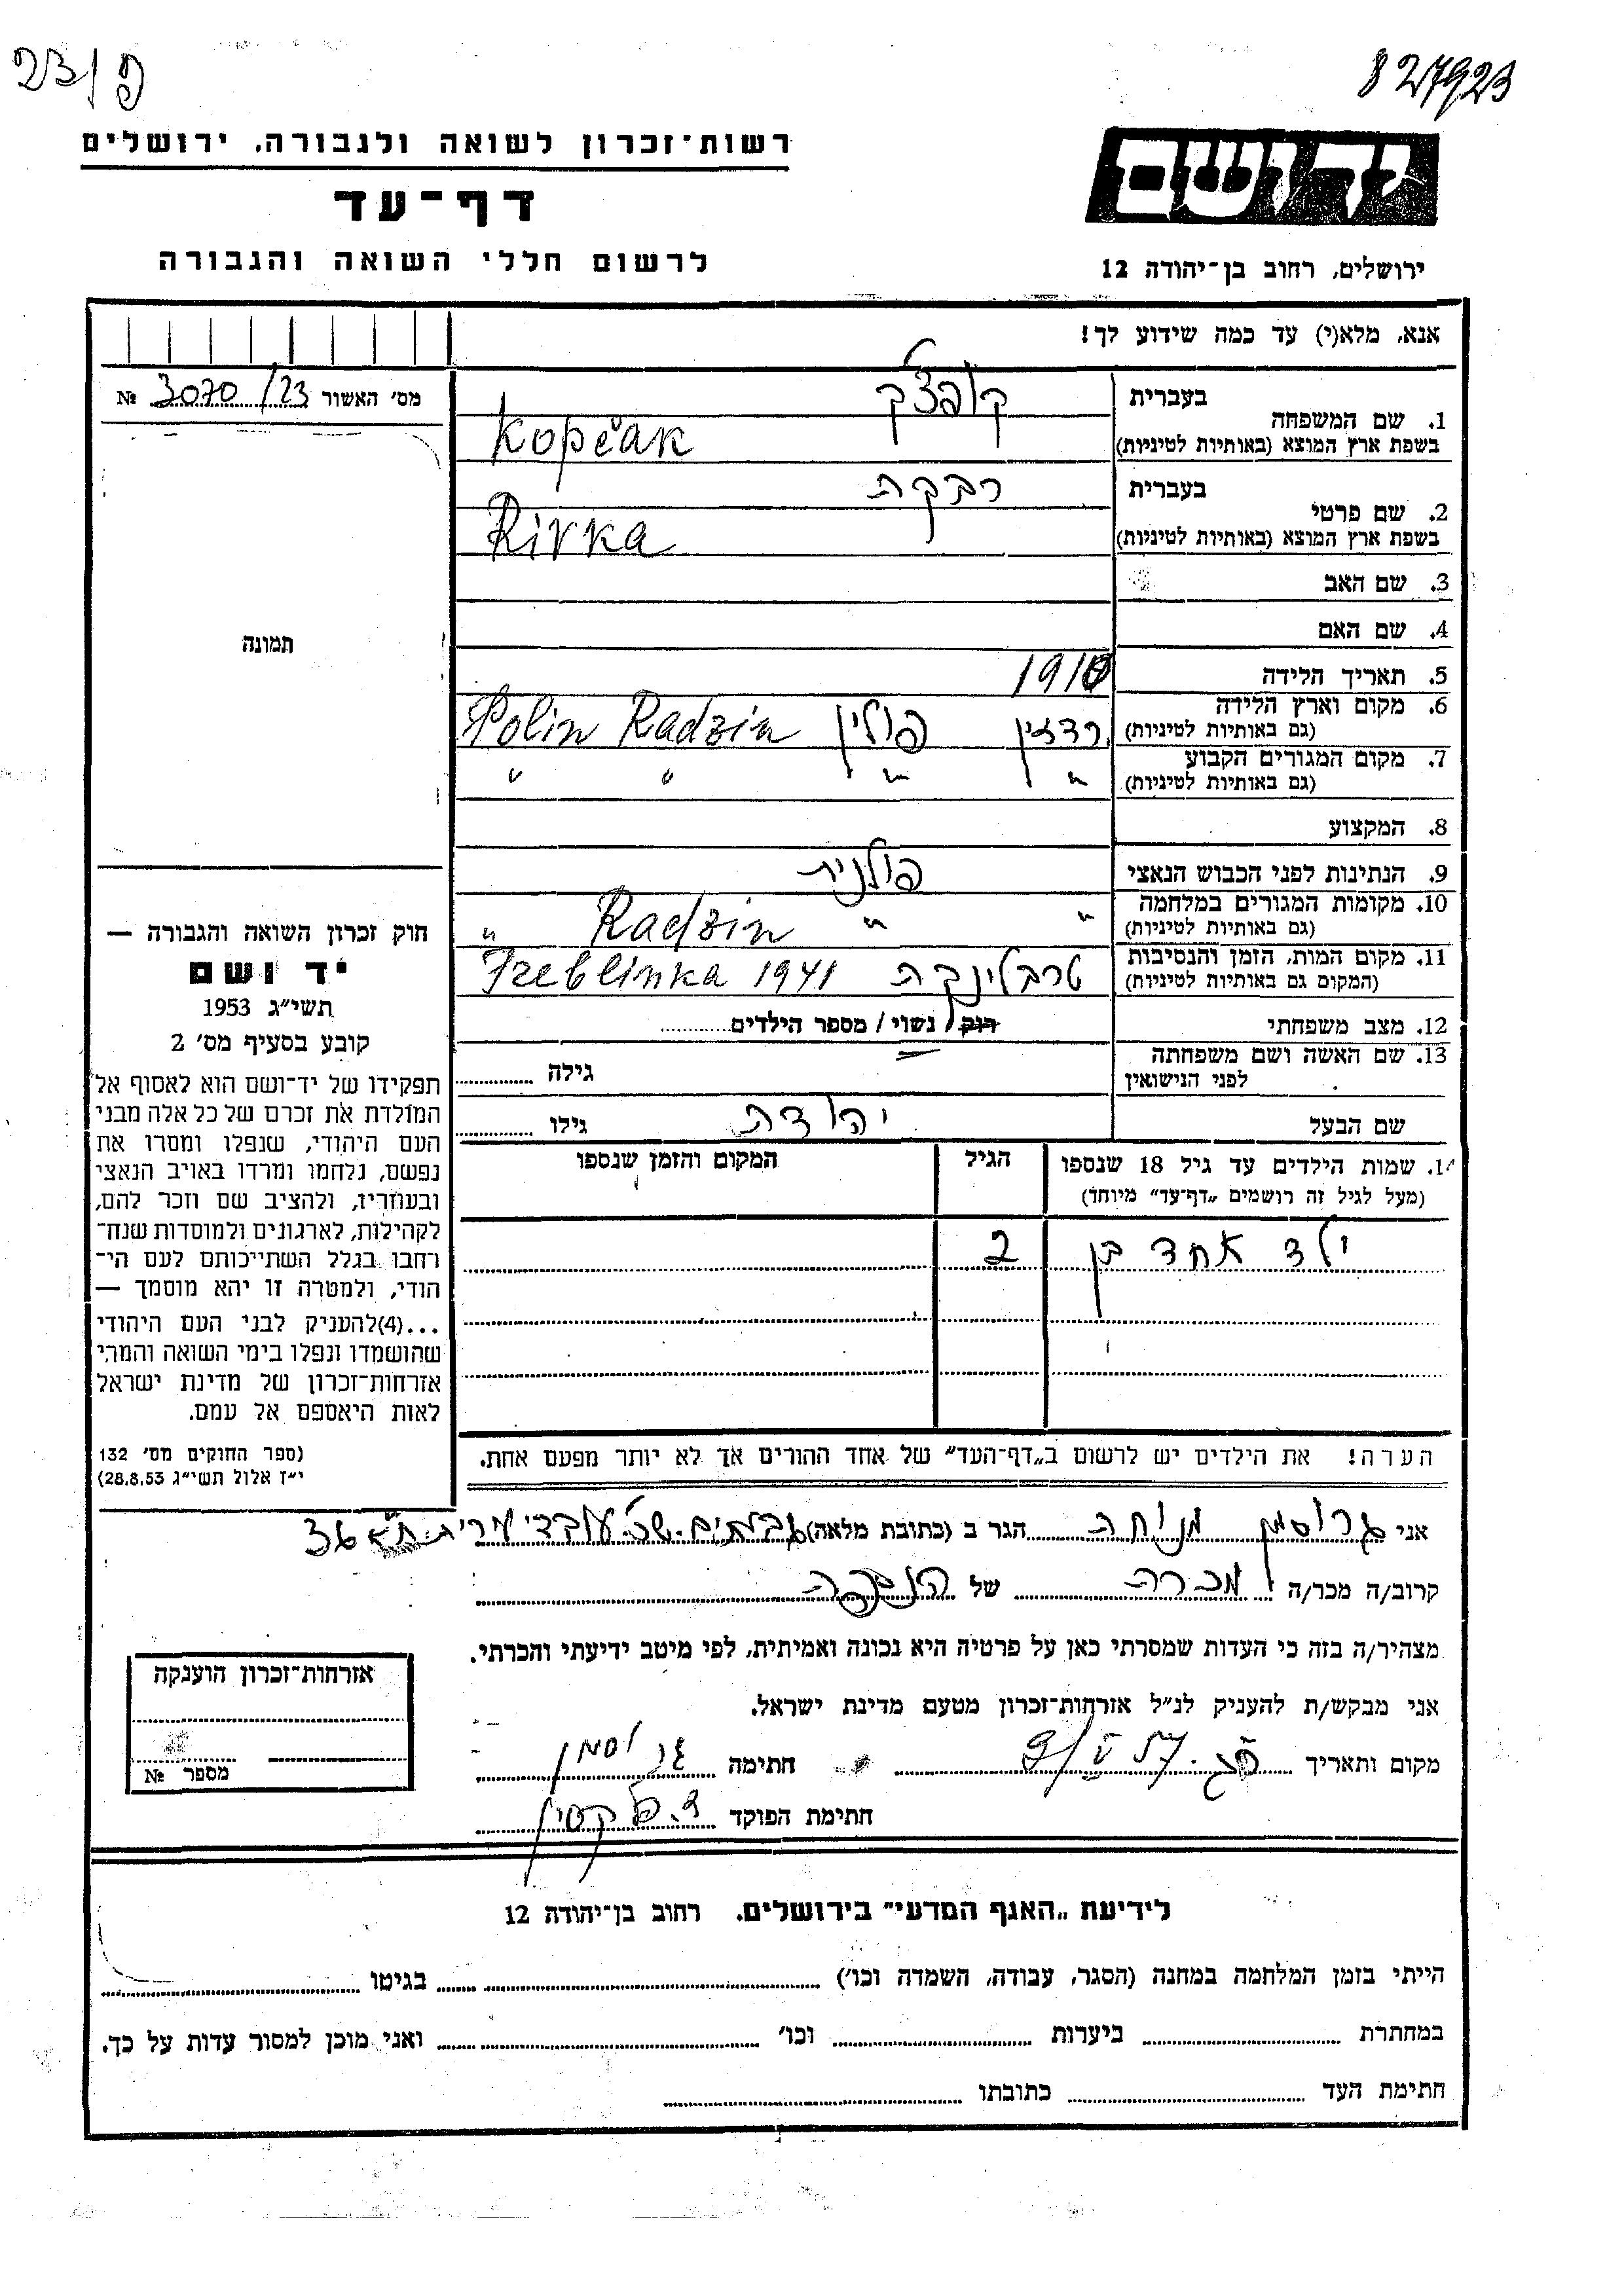 827923
פ/23
רשות־זכרון לשואה ולגבורה, ירושלים
דף־עד
לרשום חללי השואה והגבורה
יד ושם
ירושלים, רחוב בן־יהודה 12
אנא, מלא(י) עד כמה שידוע לך!
מס׳ האשור 3070/23 №
תמונה
1. שם המשפחה
בעברית קופצ׳ק
בשפת ארץ המוצא (באותיות לטיניות) Kopčak
2. שם פרטי
בעברית רבקה
בשפת ארץ המוצא (באותיות לטיניות) Rivka
3. שם האב
4. שם האם
5. תאריך הלידה 1910
6. מקום וארץ הלידה
(גם באותיות לטיניות) רדזין פולין Polin Radzin
7. מקום המגורים הקבוע
(גם באותיות לטיניות) " " " "
8. המקצוע
9. הנתינות לפני הכבוש הנאצי פולנית
10. מקומות המגורים במלחמה
(גם באותיות לטיניות) " " Radzin "
11. מקום המות, הזמן והנסיבות
(המקום גם באותיות לטיניות) טרבלינקה Treblinka 1941
12. מצב משפחתי רוק/ נשוי/ מספר הילדים
13. שם האשה ושם משפחתה
לפני הנישואין גילה
שם הבעל יהודה גילו
14. שמות הילדים עד גיל 18 שנספו
(מעל לגיל זה רושמים „דף־עד״ מיוחד)
הגיל
המקום והזמן שנספו
ילד אחד בן 2
הערה! את הילדים יש לרשום ב„דף־העד״ של אחד ההורים אך לא יותר מפעם אחת.
חוק זכרון השואה והגבורה —
יד ושם
תשי״ג 1953
קובע בסעיף מס׳ 2
תפקידו של יד־ושם הוא לאסוף אל
המולדת את זכרם של כל אלה מבני
העם היהודי, שנפלו ומסרו את
נפשם, נלחמו ומרדו באויב הנאצי
ובעוזריו, ולהציב שם וזכר להם,
לקהילות, לארגונים ולמוסדות שנח־
רחבו בגלל השתייכותם לעם הי־
הודי, ולמטרה זו יהא מוסמך —
...(4)להעניק לבני העם היהודי
שהושמדו ונפלו בימי השואה והמרי
אזרחות־זכרון של מדינת ישראל
לאות היאספם אל עמם.
(ספר החוקים מס׳ 132
י״ז אלול תשי״ג 28.8.53)
אני גרוסמן מנוחה הגר ב (כתובת מלאה) גבעתיים שכ׳ עובדי עירית ת״א 36
קרוב/ה מכר/ה מכרה של הנספה
מצהיר/ה בזה כי העדות שמסרתי כאן על פרטיה היא נכונה ואמיתית, לפי מיטב ידיעתי והכרתי.
אני מבקש/ת להעניק לנ״ל אזרחות־זכרון מטעם מדינת ישראל.
מקום ותאריך 9/V 57 חתימה גרוסמן
חתימת הפוקד
אזרחות־זכרון הוענקה
מספר №
לידיעת „האגף המדעי״ בירושלים. רחוב בן־יהודה 12
הייתי בזמן המלחמה במחנה (הסגר, עבודה, השמדה וכו׳) בגיטו
במחתרת ביערות וכו׳ ואני מוכן למסור עדות על כך.
חתימת העד כתובתו